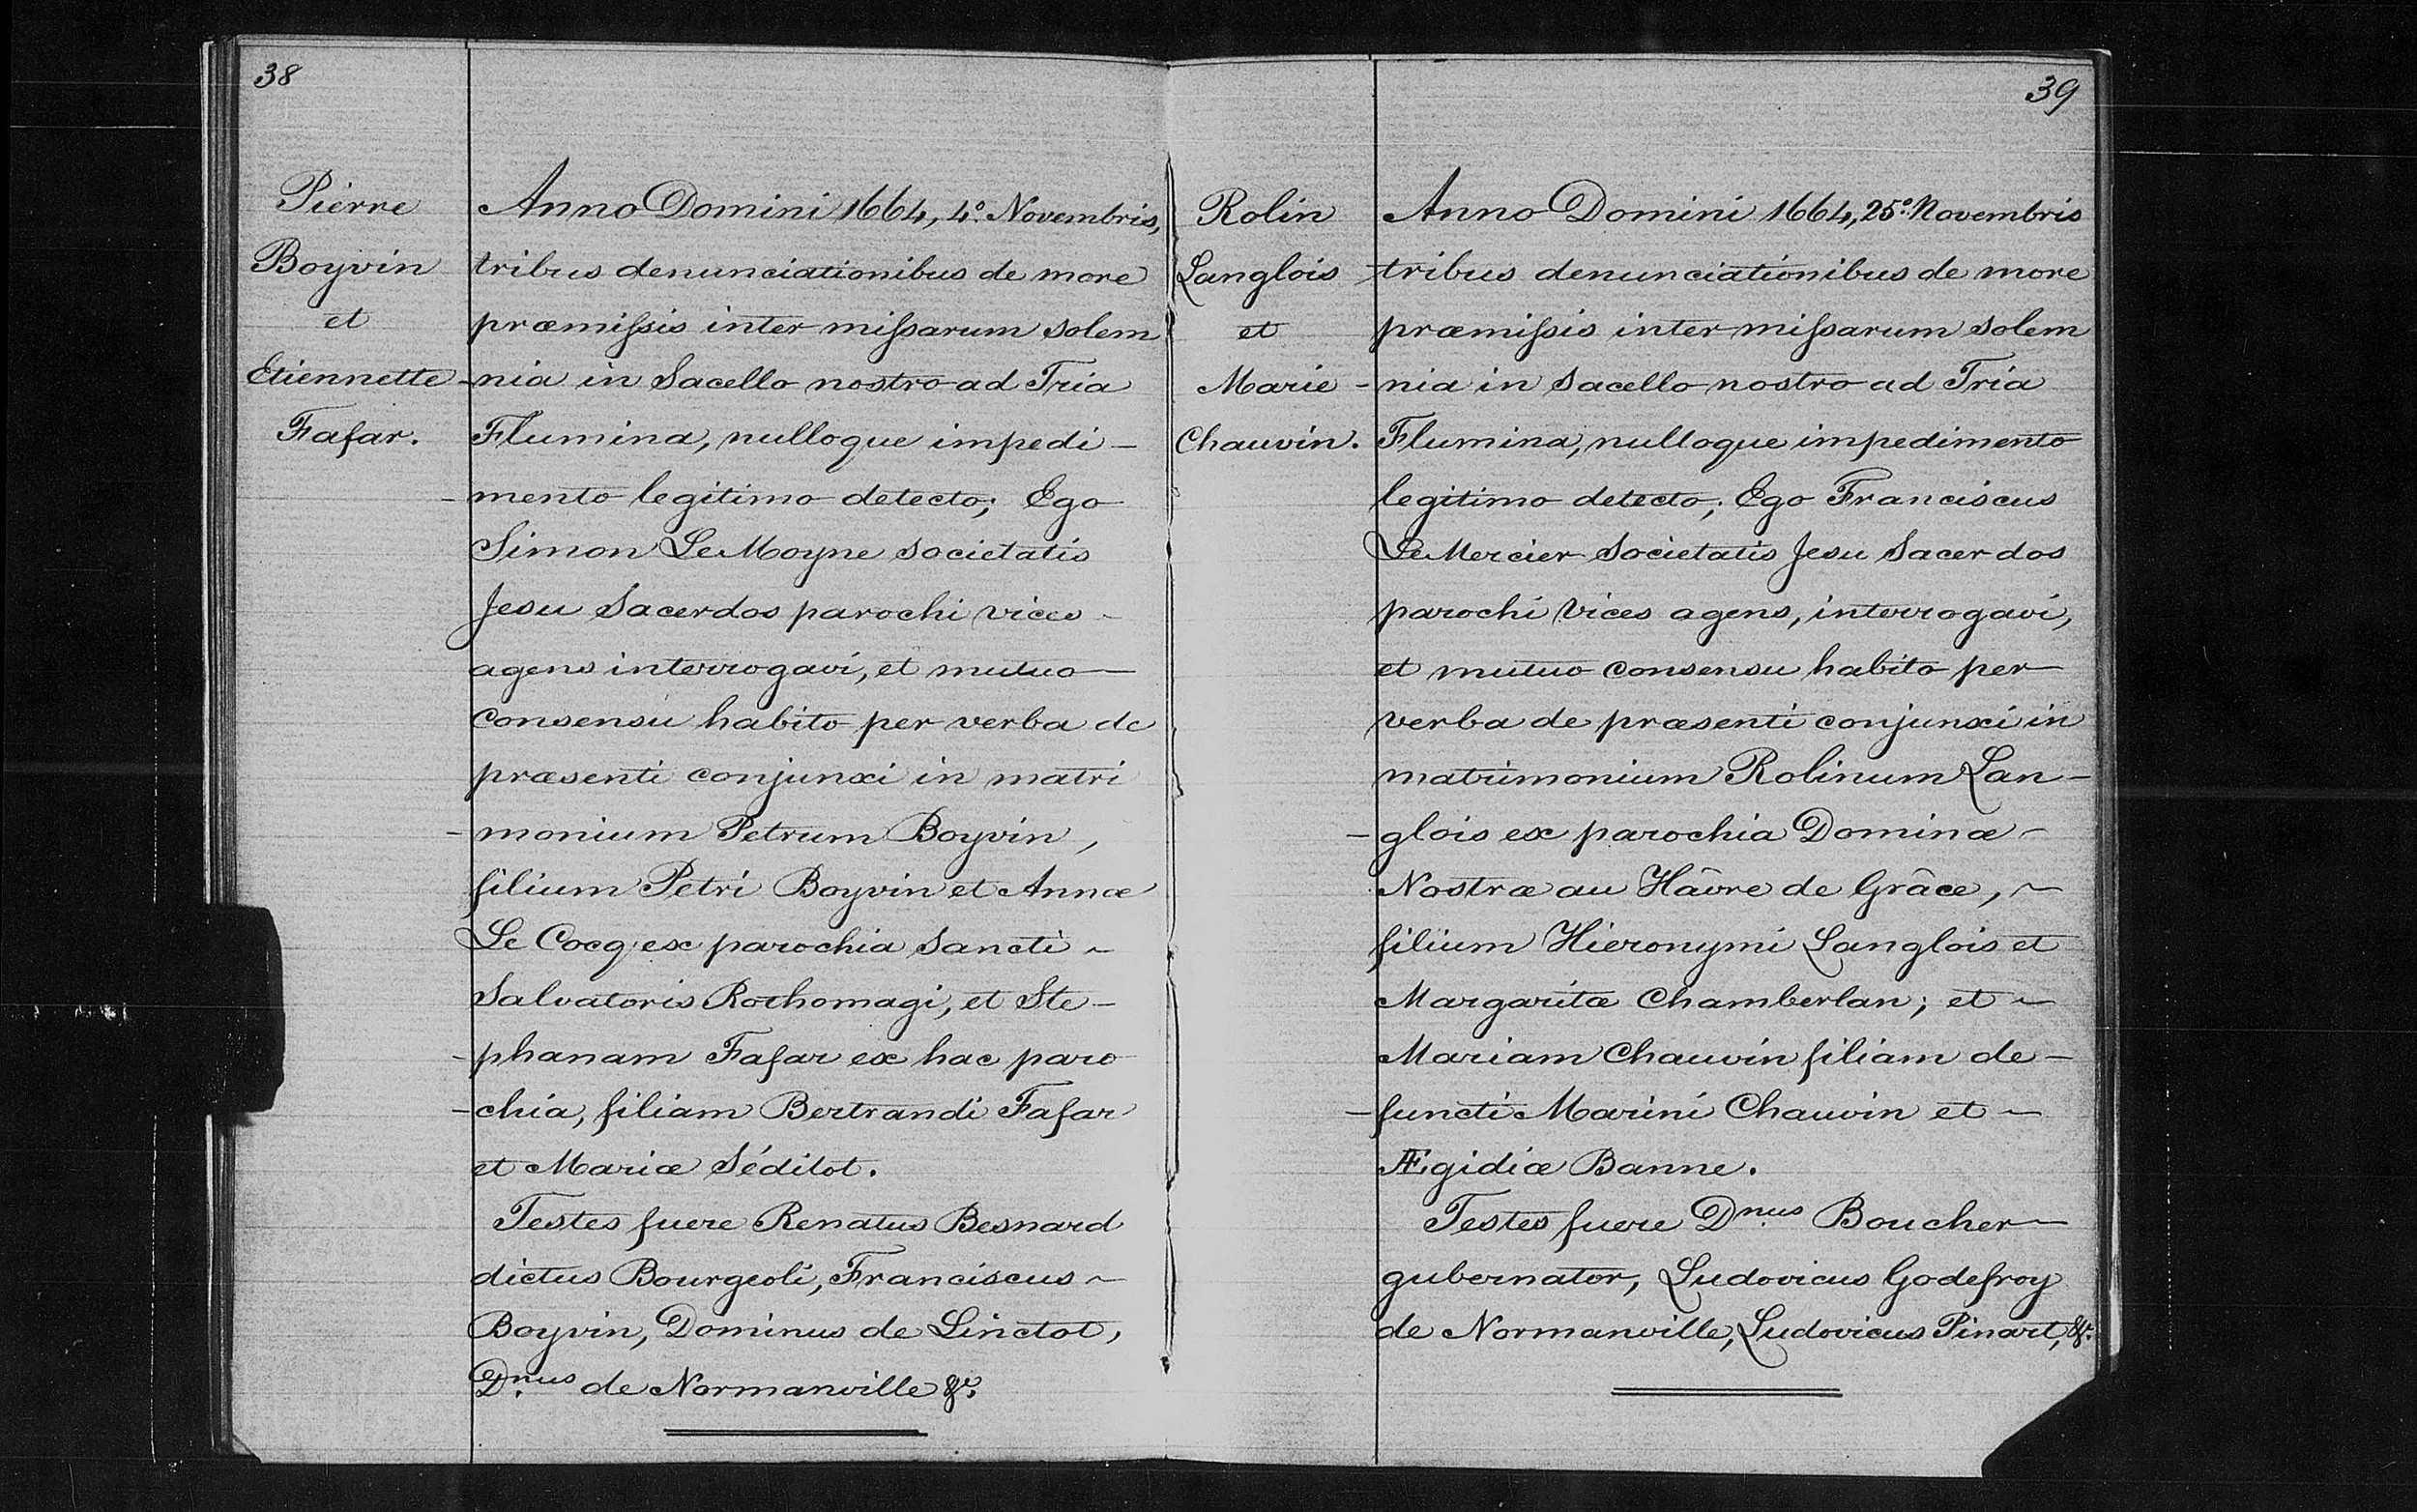 38
Pierre
Boyvin
et
Etiennette
Fafar.
Anno Domini 1664, 4º. Novembris,
tribus denunciationibus de more
præmissis inter missarum solem
-nia in Sacello nostro ad Tria
Flumina, nulloque impedi-
-mento legitimo detecto; Ego
Simon Le Moyne societatis
Jesu Sacerdos parochi vices
agens interrogavi, et mutuo
consensu habito per verba de
præsenti conjunxi in matri
-monium Petrum Boyvin,
filium Petri Boyvin et Annæ
Le Cocq ex parochia Sancti
Salvatoris Rothomagi, et Ste-
-phanam Fafar ex hac paro
-chia, filiam Bertrandi Fafar
et Mariæ Sédilot.
Testes fuere Renatus Besnard
dictus Bourgeoli, Franciscus
Boyvin, Dominus de Linctot,
Dnus de Normanville &c.
39
Rolin
Langlois
et
Marie
Chauvin.
Anno Domini 1664, 25º. Novembris
tribus denunciationibus de more
præmissis inter missarum solem
-nia in Sacello nostro ad Tria
Flumina, nulloque impedimento
legitimo detecto; Ego Franciscus
Le Mercier Societatis Jesu Sacerdos
parochi vices agens, interrogavi,
et mutuo consensu habito per
verba de præsenti conjunxi in
matrimonium Rolinum Lan-
-glois ex parochia Dominæ
Nostræ au Hâvre de Grâce,
filium Hieronymi Langlois et
Margaritæ Chamberlan; et
Mariam Chauvin filiam de-
-functi Marini Chauvin et
Ægidiæ Banne.
Testes fuere Dnus Boucher
gubernator, Ludovicus Godefroy
de Normanville, Ludovicus Pinart, &c.